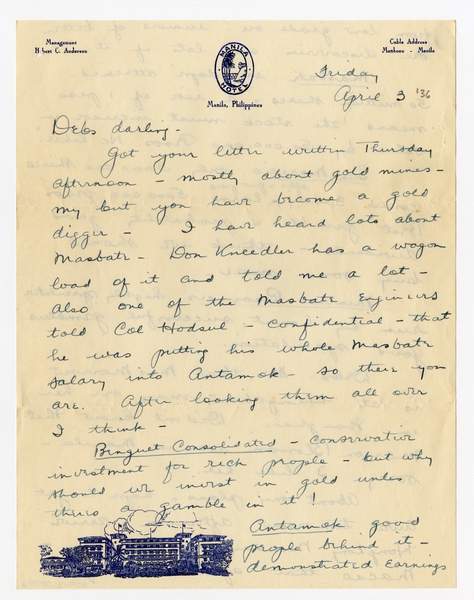 Management
Robert C. Anderson
MANILA
HOTEL
Manila, Philippines
Cable Address
Manhoco - Manila
Friday
April 3 '36
Debs darling -
Got your letter written Thursday
afternoon - mostly about gold mines -
my but you have become a gold
digger - I have heard lots about
Masbate - Don Kneedler has a wagon
load of it and told me a lot -
also one of the Masbate Engineers
told Col Hodsul - confidential - that
he was putting his whole Masbate
salary into Antamok - so there you
are. After looking them all over
I think -
Benguet Consolidated - conservative
investment for rich people - but why
should we invest in gold unless
theres a gamble in it!
Antamok good
people behind it -
demonstrated earnings